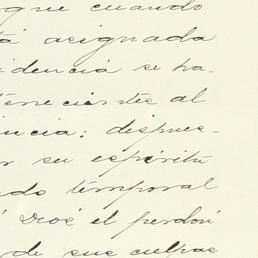 que cuando
tá asignada
idencia se ha-
tenecientes al
incia: despues-
r su espíritu
ndo temporal
Dios el perdón
de sus culpas